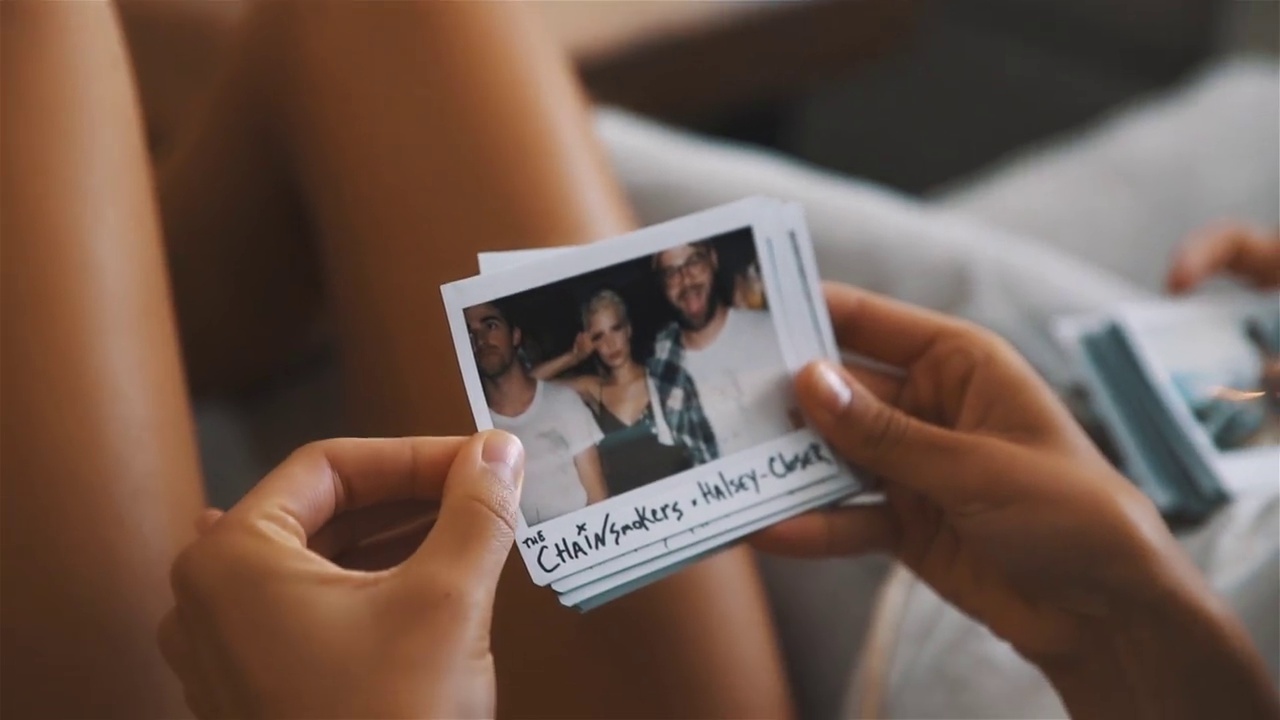 THE CHAINSMOKERS • HALSEY - CLOSER